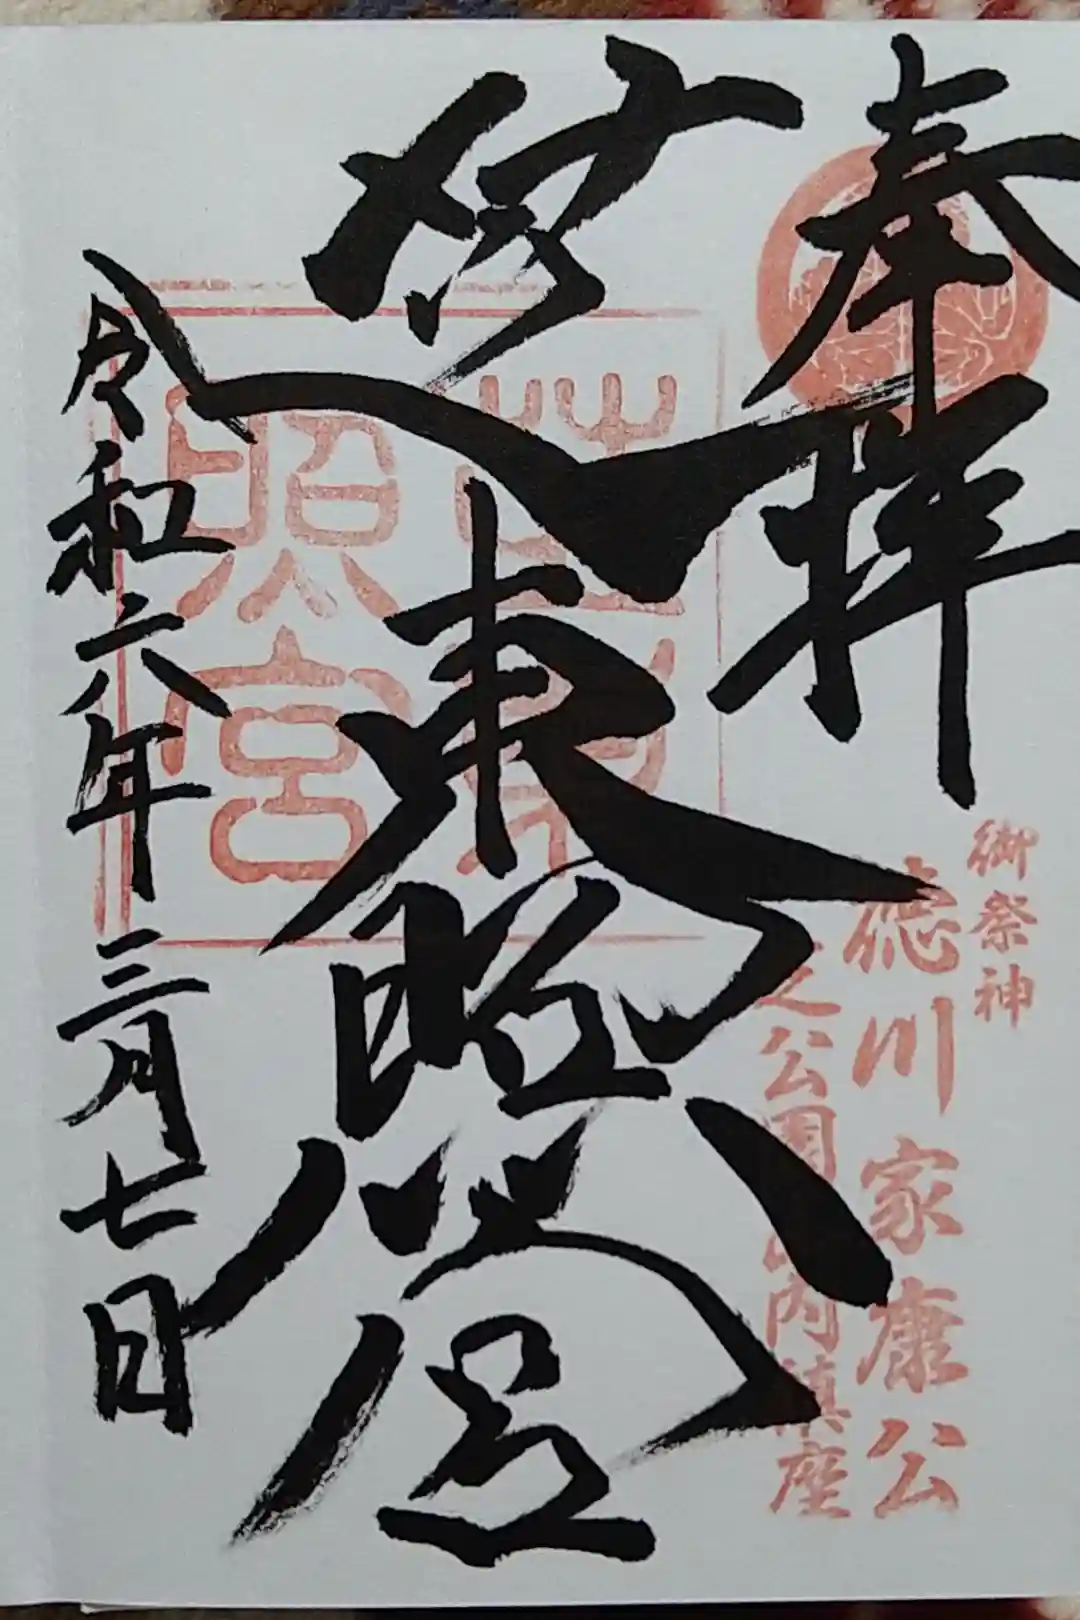 奉拝
御祭神
徳川家康公
公園
内鎮座
芝東照宮
芝東
照宮
令和六年三月七日